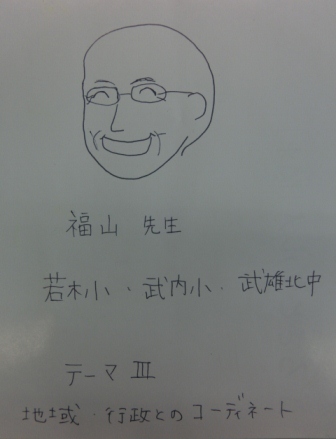 福山 先生
若木小・武内小・武雄北中
テーマ Ⅲ
地域・行政とのコーディネート